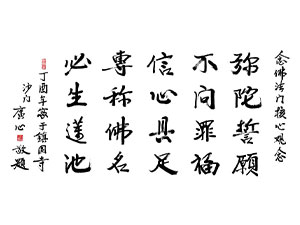 念佛法门核心观念
弥陀誓愿
不问罪福
信心具足
專称佛名
必生莲池
丁酉年写于镇国寺
沙门廣心敬题